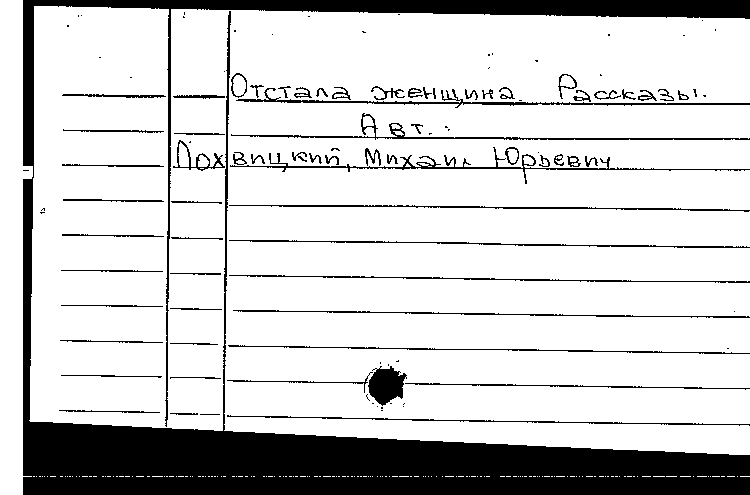 Отстала женщина. Рассказы.
Авт.:
Лохвицкий, Михаил Юрьевич